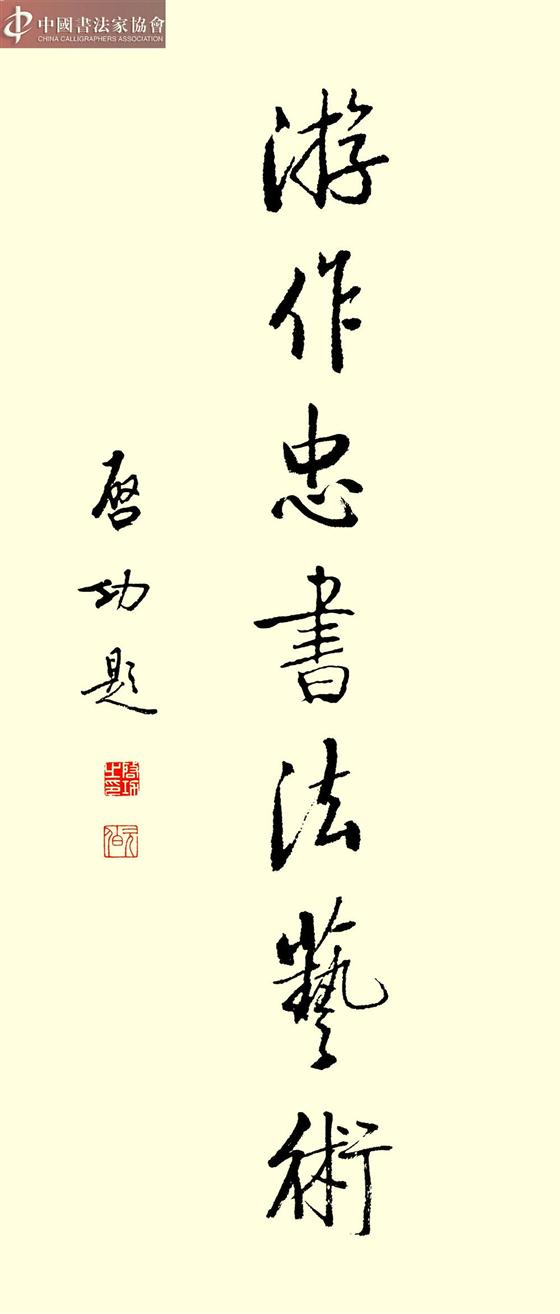 中國書法家協會
CHINA CALLIGRAPHERS ASSOCIATION
游作忠書法藝術
啓功題
啓功之印
元白